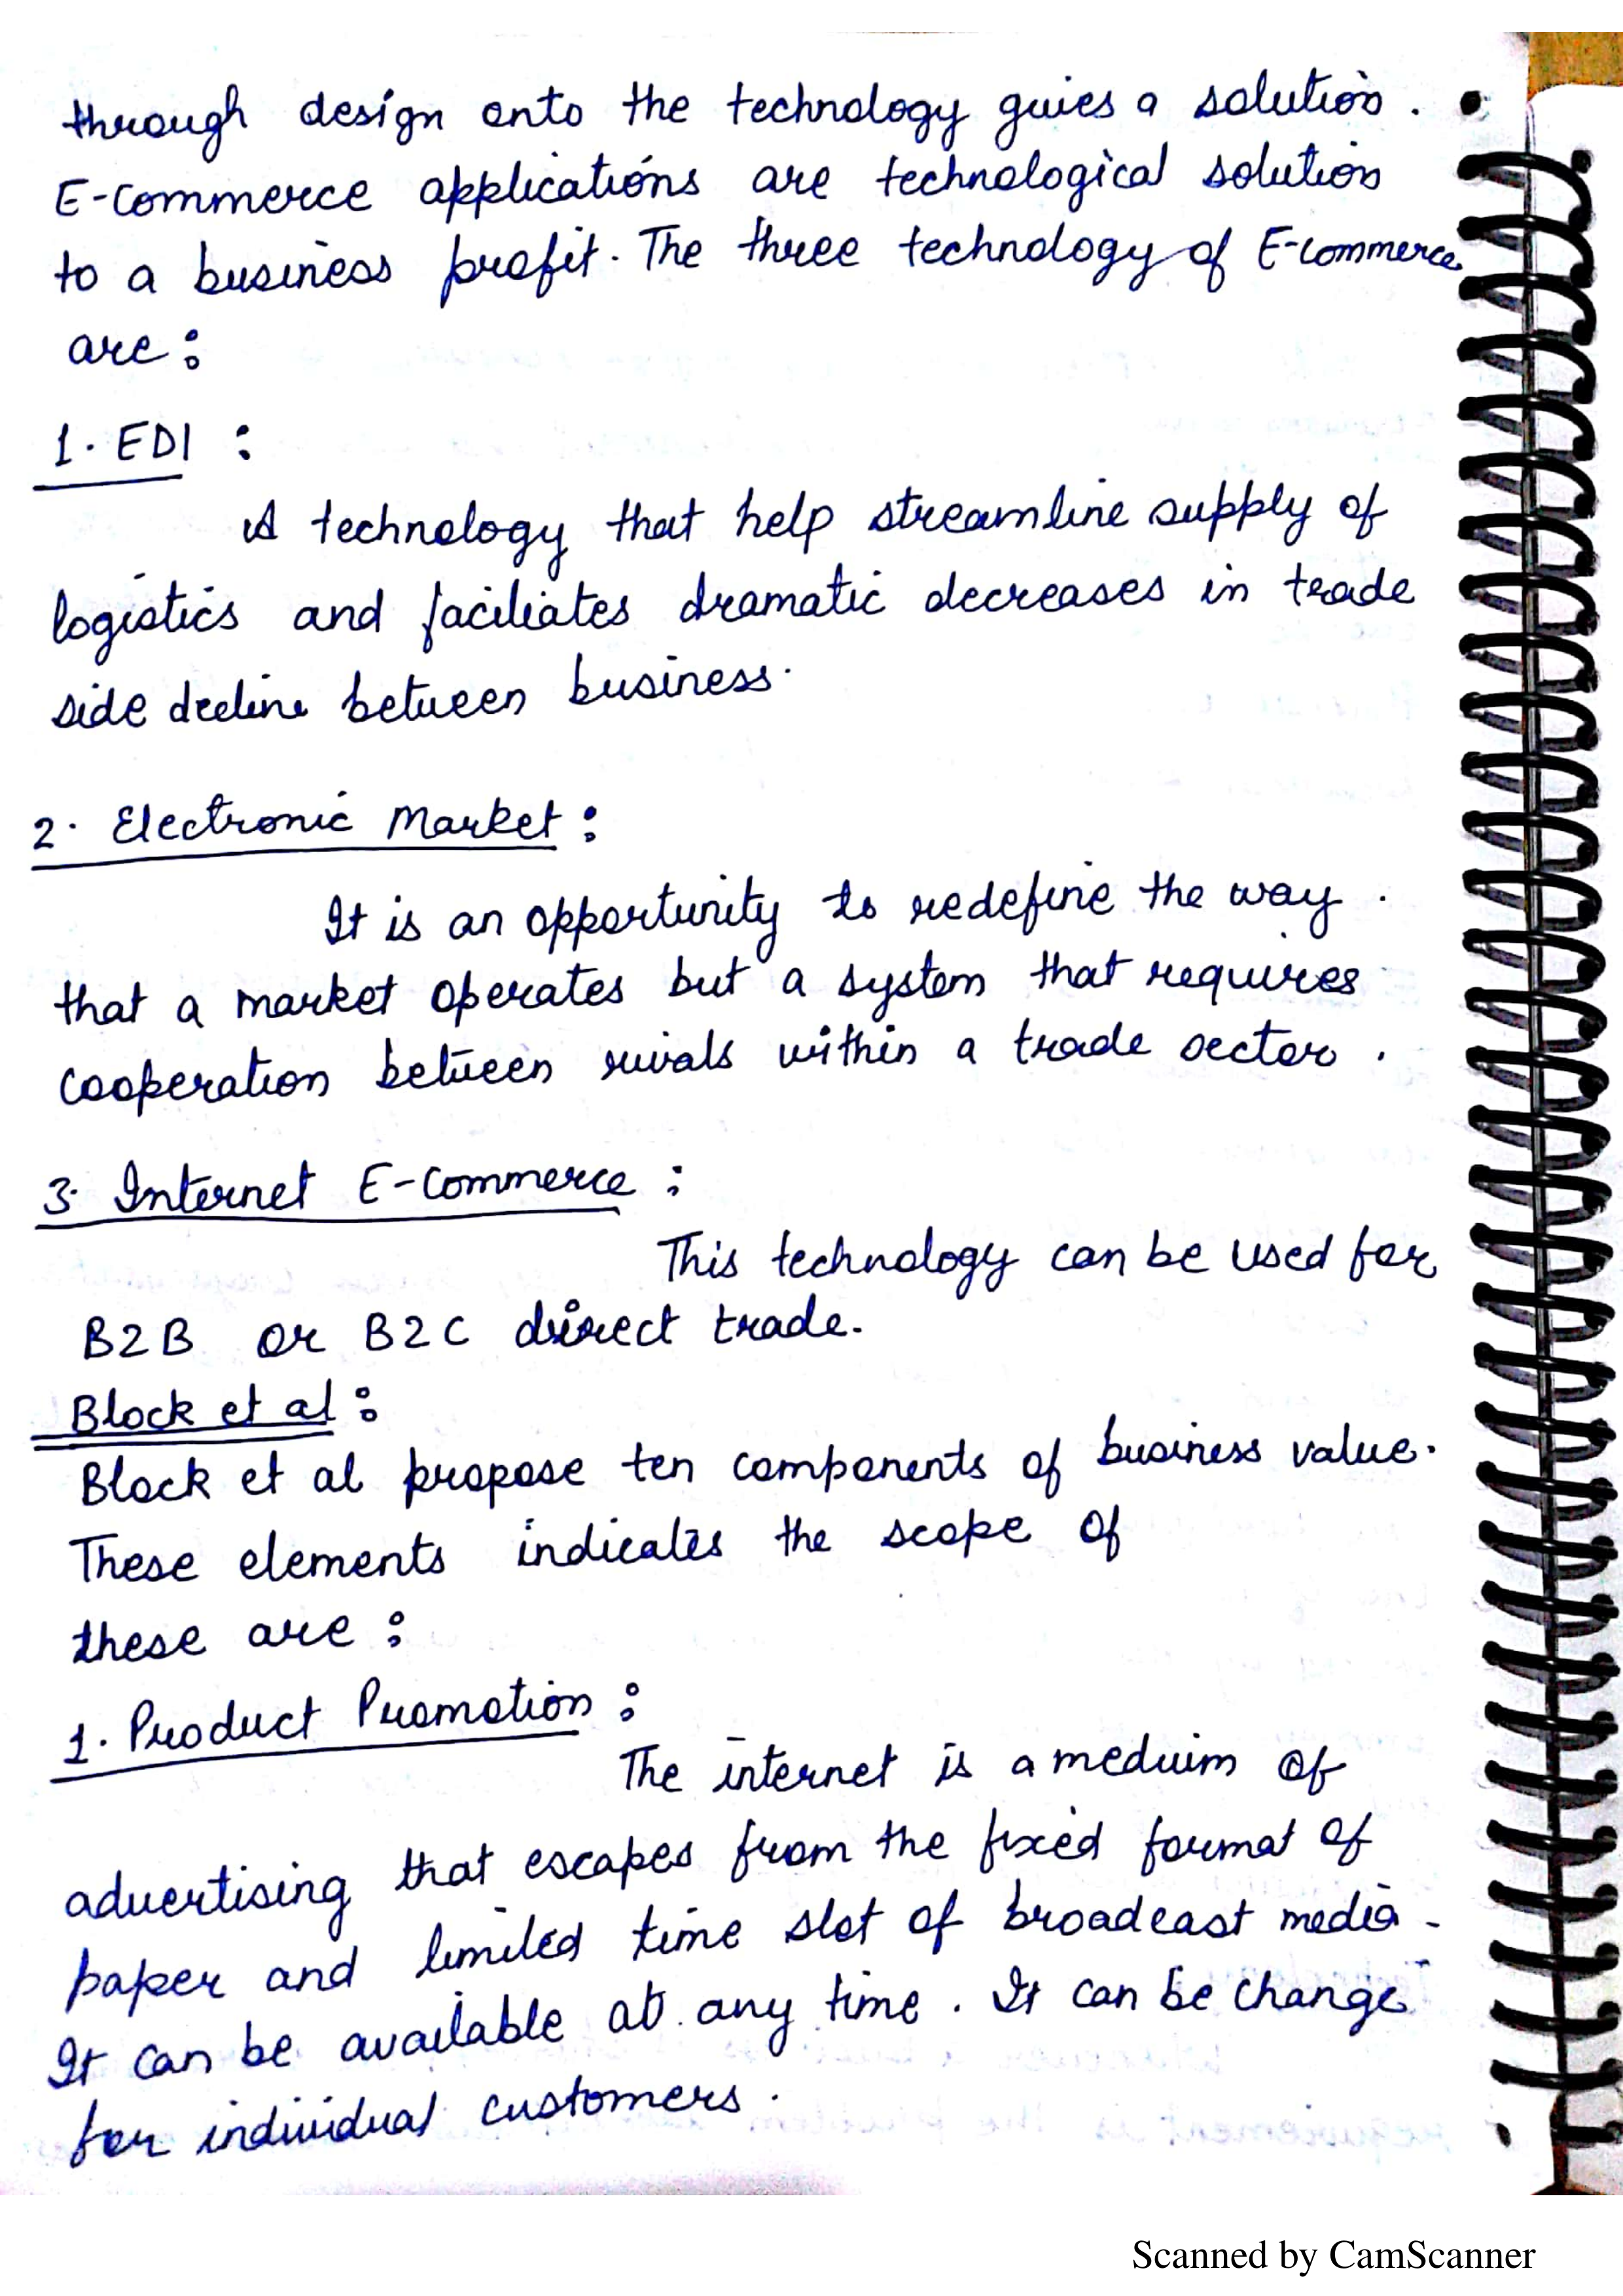 through design onto the technology gives a solution.
E-commerce applications are technological solution
to a business profit. The three technology of E-commerce
are :
1. EDI :
A technology that help streamline supply of
logistics and faciliates dramatic decreases in trade
side decline between business.
2. Electronic Market :
It is an opportunity to redefine the way.
that a market operates but a system that requires
cooperation between rivals within a trade sector.
3. Internet E-Commerce :
This technology can be used for
B2B or B2C direct trade.
Block et al :
Block et al propose ten components of business value.
These elements indicates the scope of
these are :
1. Product Promotion :
The internet is a meduim of
advertising that escapes from the fixed format of
paper and limited time slot of broadcast media.
It can be available at any time. It can be change
for individual customers.
Scanned by CamScanner